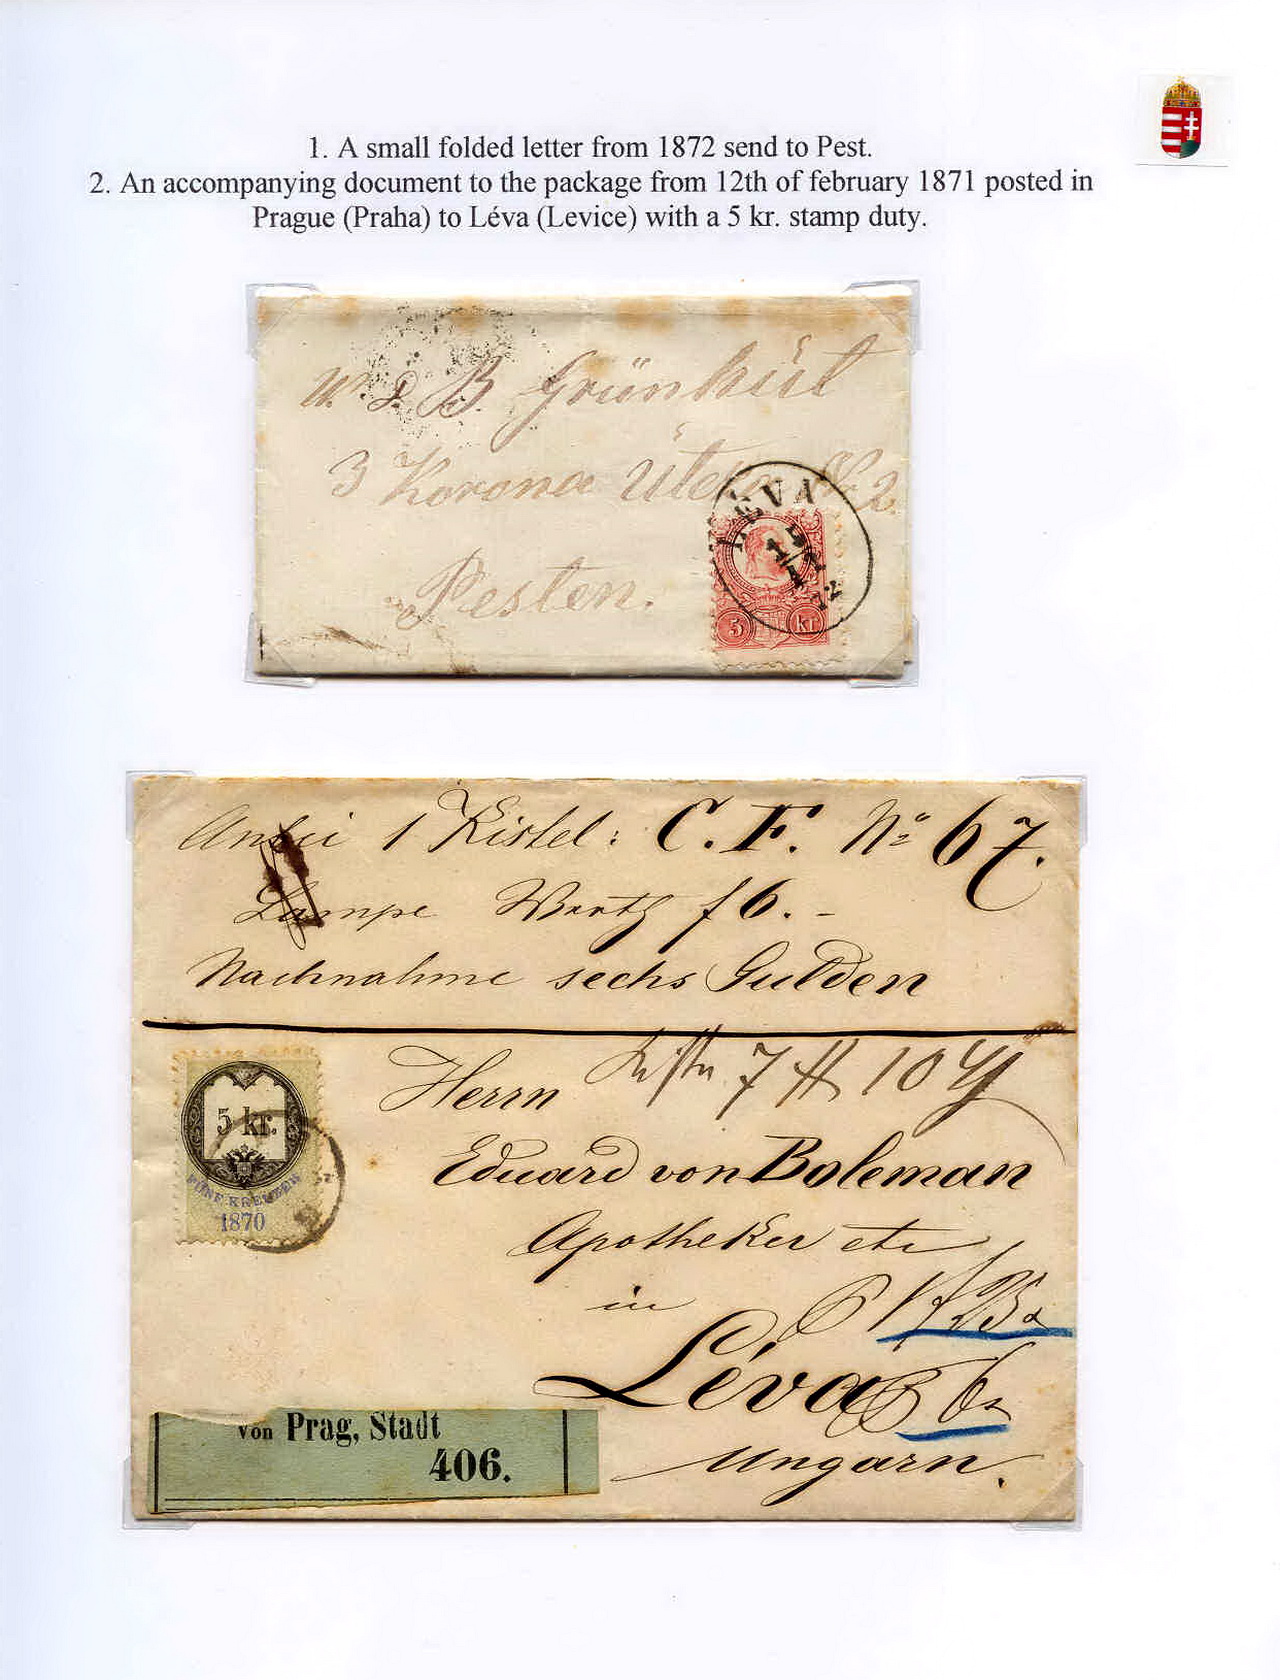 1. A small folded letter from 1872 send to Pest.
2. An accompanying document to the package from 12th of february 1871 posted in
Prague (Praha) to Léva (Levice) with a 5 kr. stamp duty.
B. Grünhüt
3 Korona
Pesten.
LÉVA
15
72
5 kr.
1 Kistel: C. F. No 67.
Lampe Werth f 6. -
Nachnahme sechs Gulden
Herrn 7 10
Eduard von Boleman
Apotheker etc
in
Léva
Ungarn.
5 kr.
FÜNF KREUZER
1870
von Prag, Stadt
406.